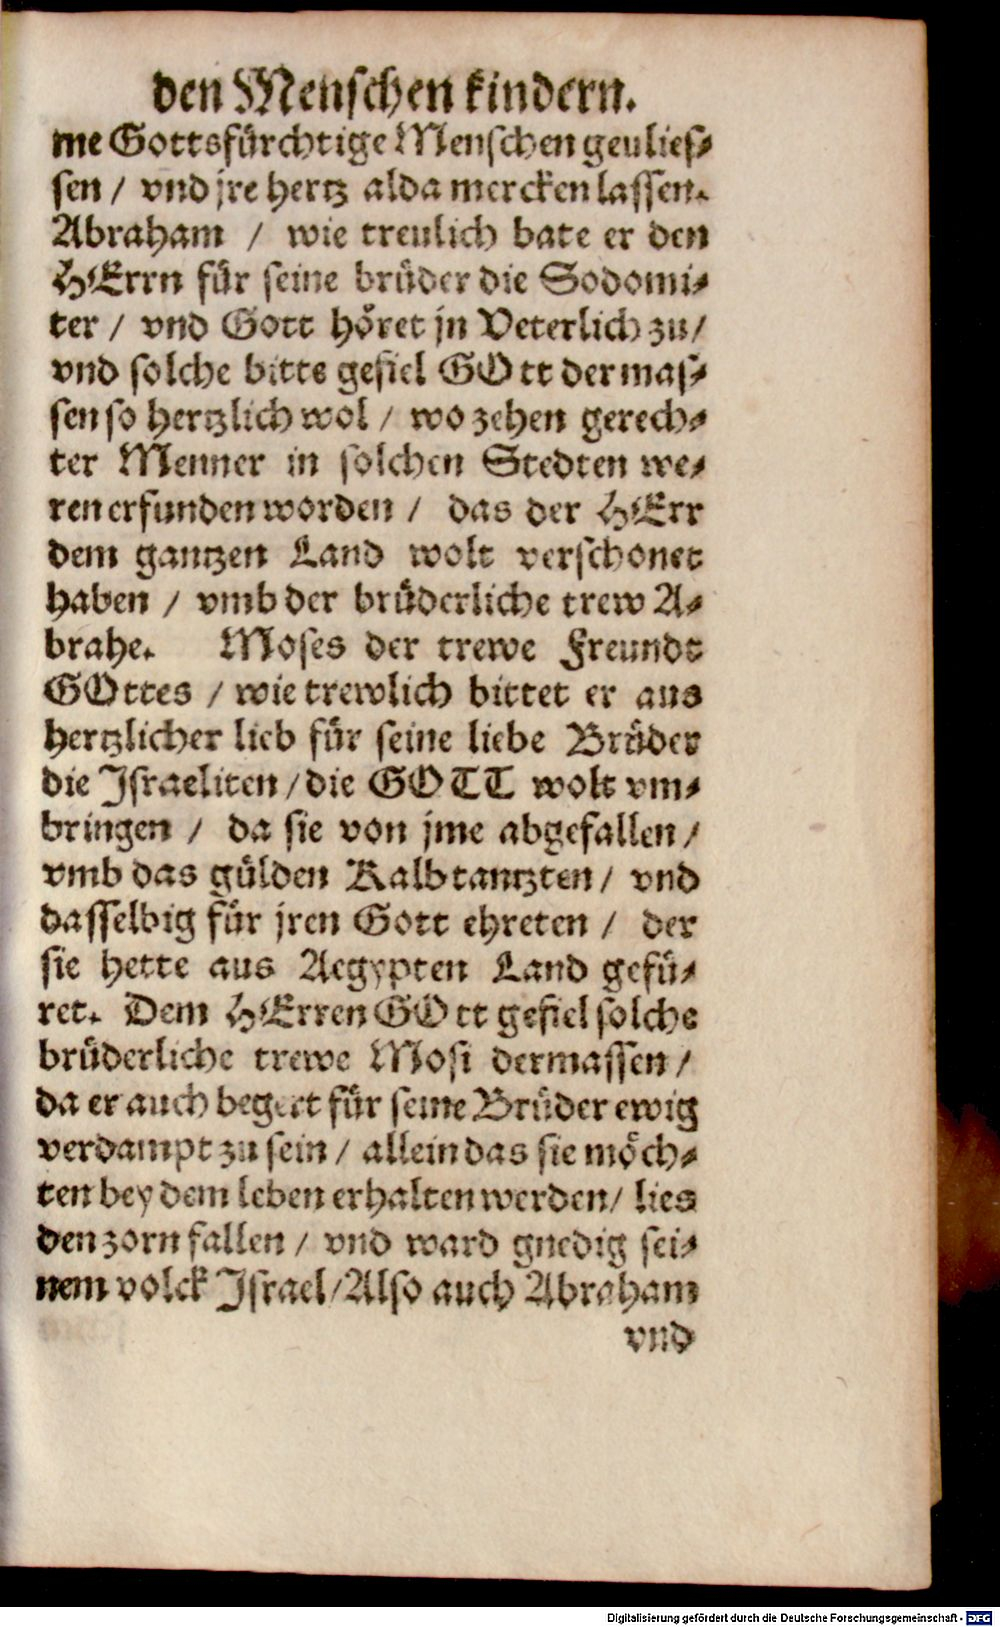 den Menschen kindern.
me Gottsfürchtige Menschen geulies-
sen / vnd jre hertz alda mercken lassen.
Abraham / wie treulich bate er den
HErrn für seine brüder die Sodomi-
ter / vnd Gott höret jn Veterlich zu /
vnd solche bitte gefiel GOtt der mas-
sen so hertzlich wol / wo zehen gerech-
ter Menner in solchen Stedten we-
ren erfunden worden / das der HErr
dem gantzen Land wolt verschonet
haben / vmb der brüderliche trew A-
brahe. Moses der trewe Freundt
GOttes / wie trewlich bittet er aus
hertzlicher lieb für seine liebe Brüder
die Israeliten / die GOTT wolt vm-
bringen / da sie von jme abgefallen /
vmb das gülden Kalb tantzten / vnd
dasselbig für jren Gott ehreten / der
sie hette aus Aegypten Land gefü-
ret. Dem HErren GOtt gefiel solche
brüderliche trewe Mosi dermassen /
da er auch begert für seine Brüder ewig
verdampt zu sein / allein das sie möch-
ten bey dem leben erhalten werden / lies
den zorn fallen / vnd ward gnedig sei-
nem volck Israel / Also auch Abraham
vnd
Digitalisierung gefördert durch die Deutsche Forschungsgemeinschaft - DFG